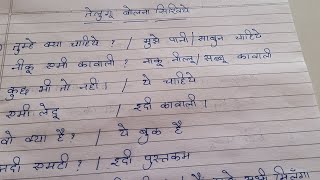 तेलुगू बोलना सिखिये
तुम्हे क्या चाहिये ? / मुझे पानी / साबुन चाहिये
नीकू एमी कावाली ? / नाकू नील्लू / सब्बू कावाली
कुछ भी तो नही। / ये चाहिये
एमी लेदू / इदी कावाली।
वो क्या है? / ये बुक है
अदी एमटी? / इदी पुस्तकम